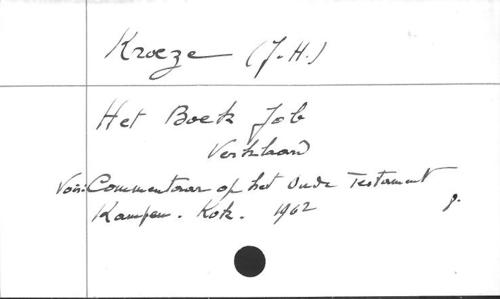 Kroeze (J.H.)
Het Boek Job
Verklaard
Voir: Commentaar op het Oude Testament
Kampen. Kok. 1962